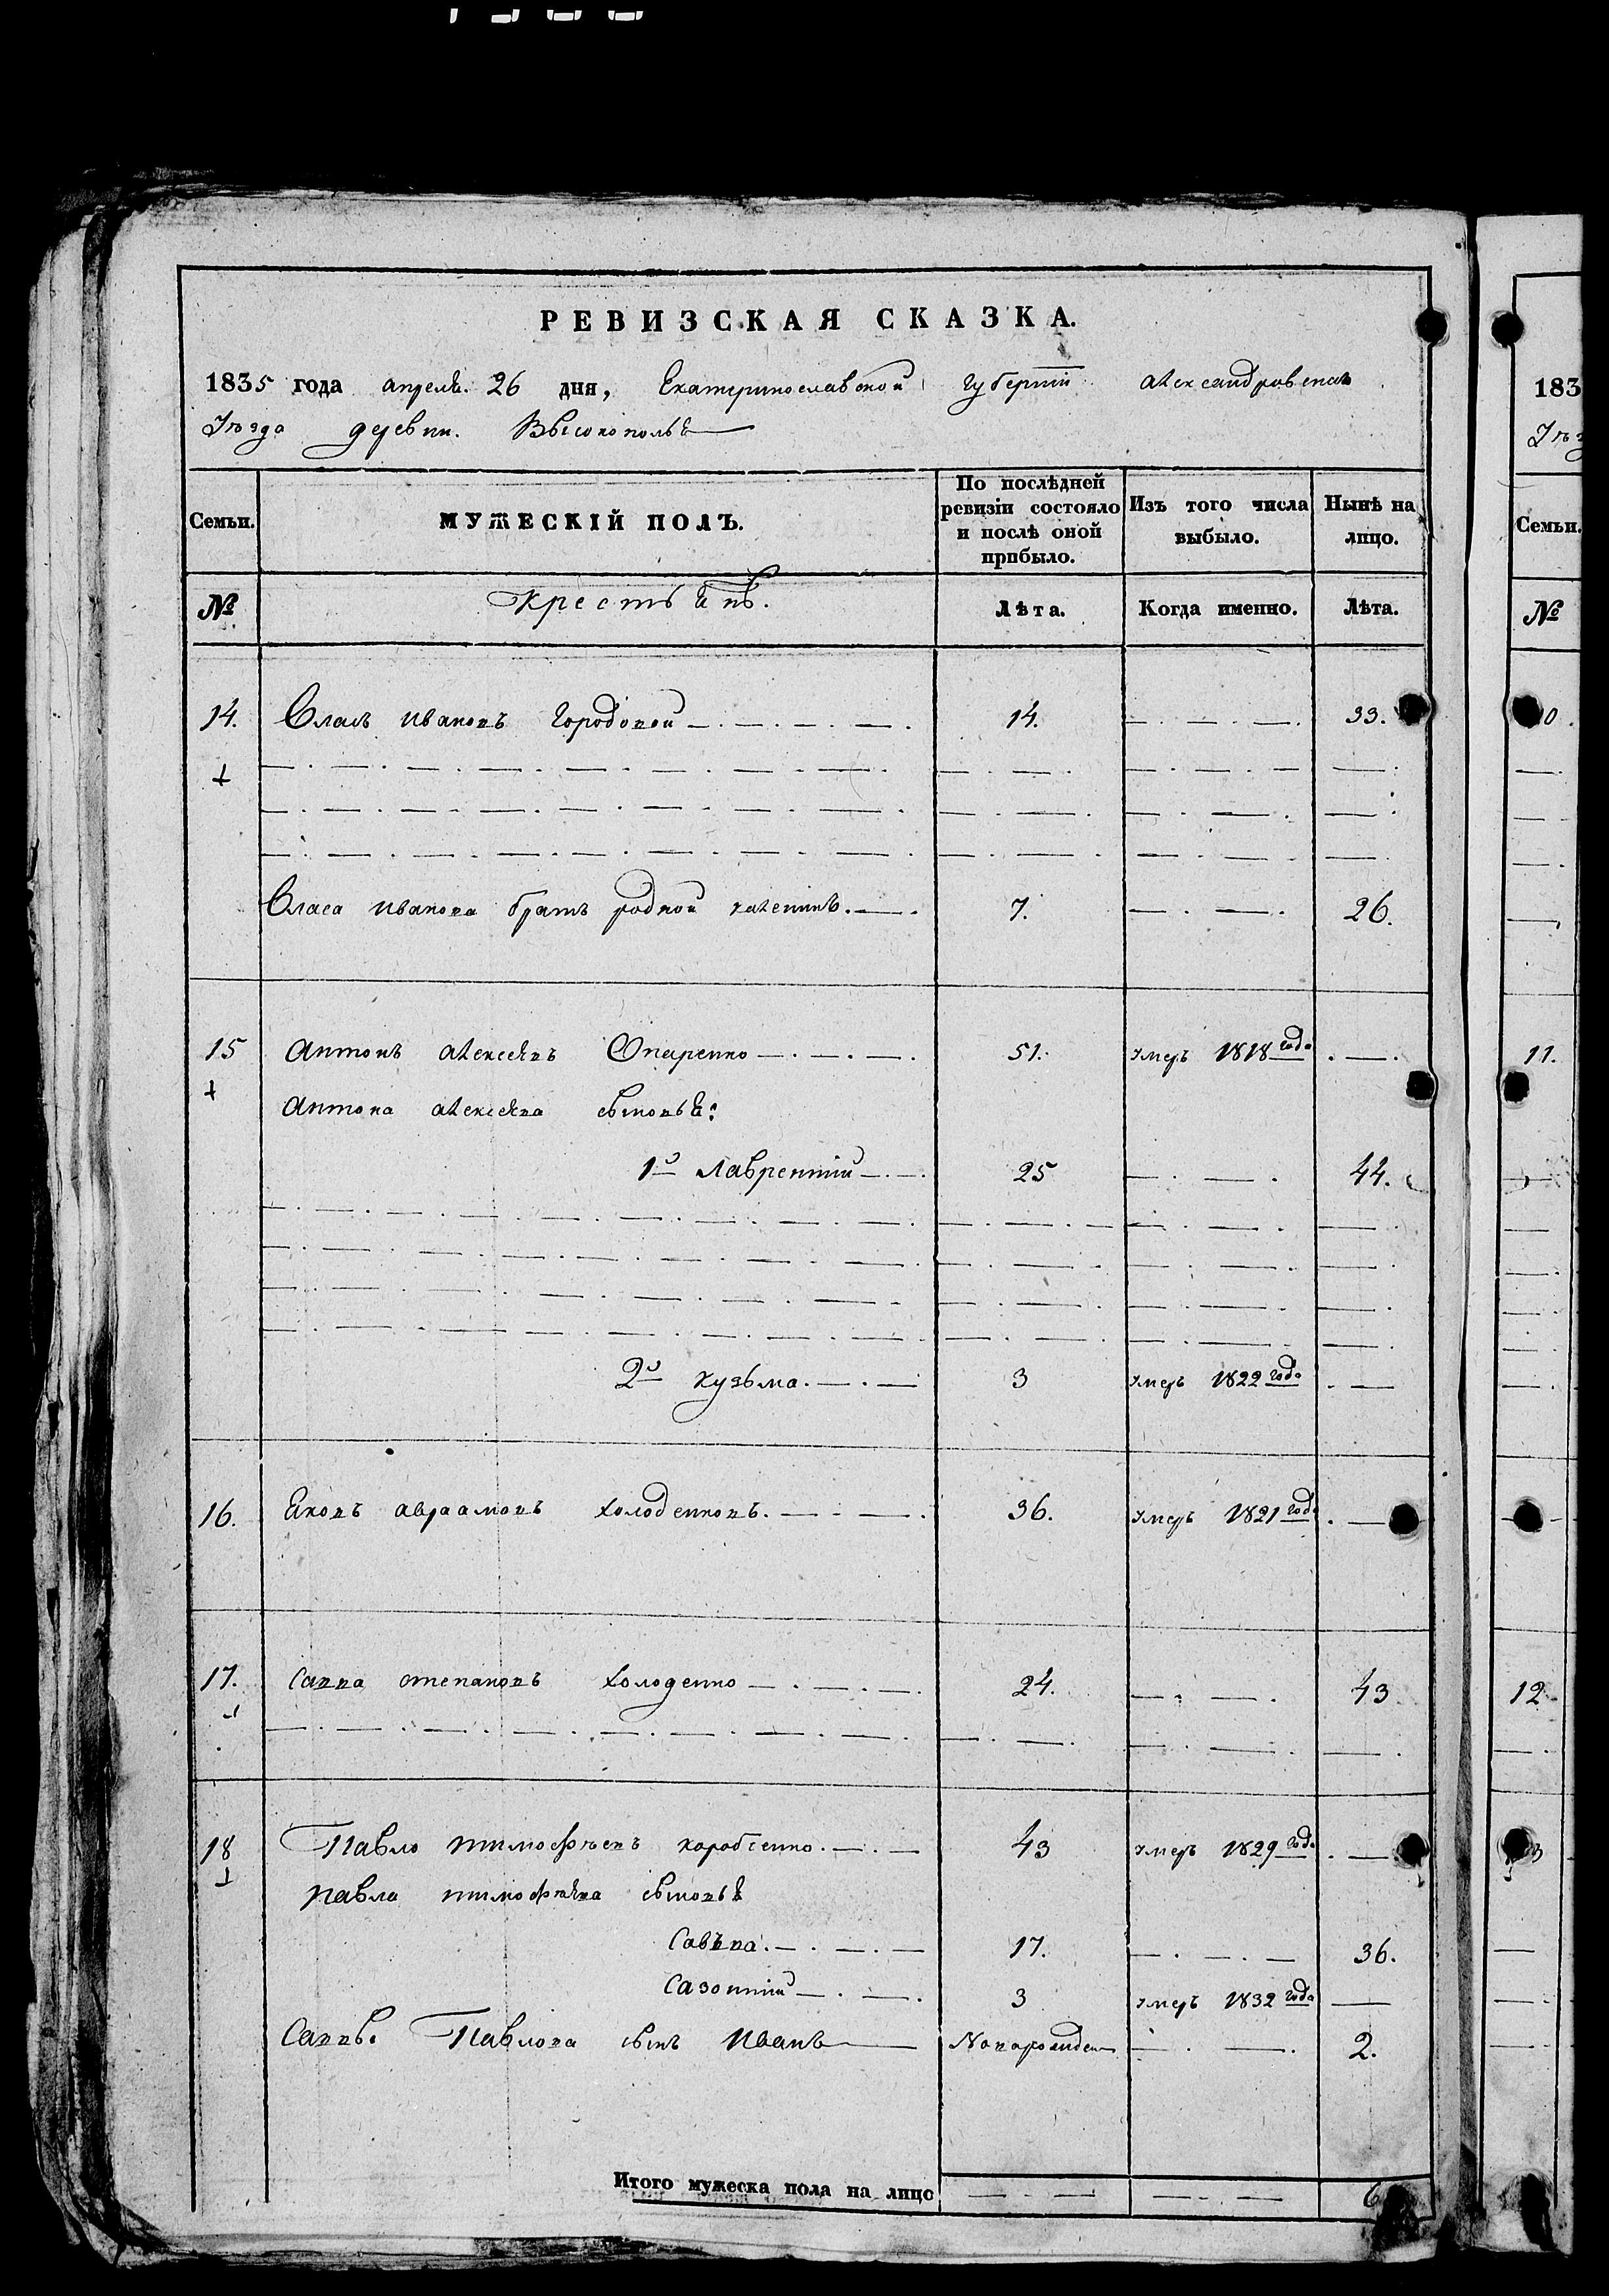 РЕВИЗСКАЯ СКАЗКА.
1835 года апреля. 26 дня, Екатеринославской губернии александровскаго
Уезда деревни. Высокополья
Семьи. МУЖЕСКІЙ ПОЛЪ. По послѣдней ревизіи состояло и послѣ оной прибыло. Изъ того числа выбыло. Нынѣ на лицо.
№ Крестьянъ. Лѣта. Когда именно. Лѣта.
14. Власъ Ивановъ Городовой 14. 33.
Власа Иванова братъ родной калениkъ. 7. 26.
15 Антонъ алексеевъ Опаренко 51. умеръ 1818 года
Антона алексеева сыновья:
1й Лаврентий 25 44.
2й кузьма. 3 умеръ 1822 года
16. Яковъ авраамовъ холоденковъ. 36. умеръ 1821 года
17. Савва степановъ холоденко 24. 43
18 Павло тимофѣевъ коробченко. 43 умеръ 1829 года
павла тимофеева сыновья
Савъва. 17. 36.
Сазонтий 3 умеръ 1832 года
Саввы Павлова сынъ Иванъ Новорожден 2.
Итого мужеска пола на лицо 6
183
Уез
Семьи.
№
0.
11.
12
3